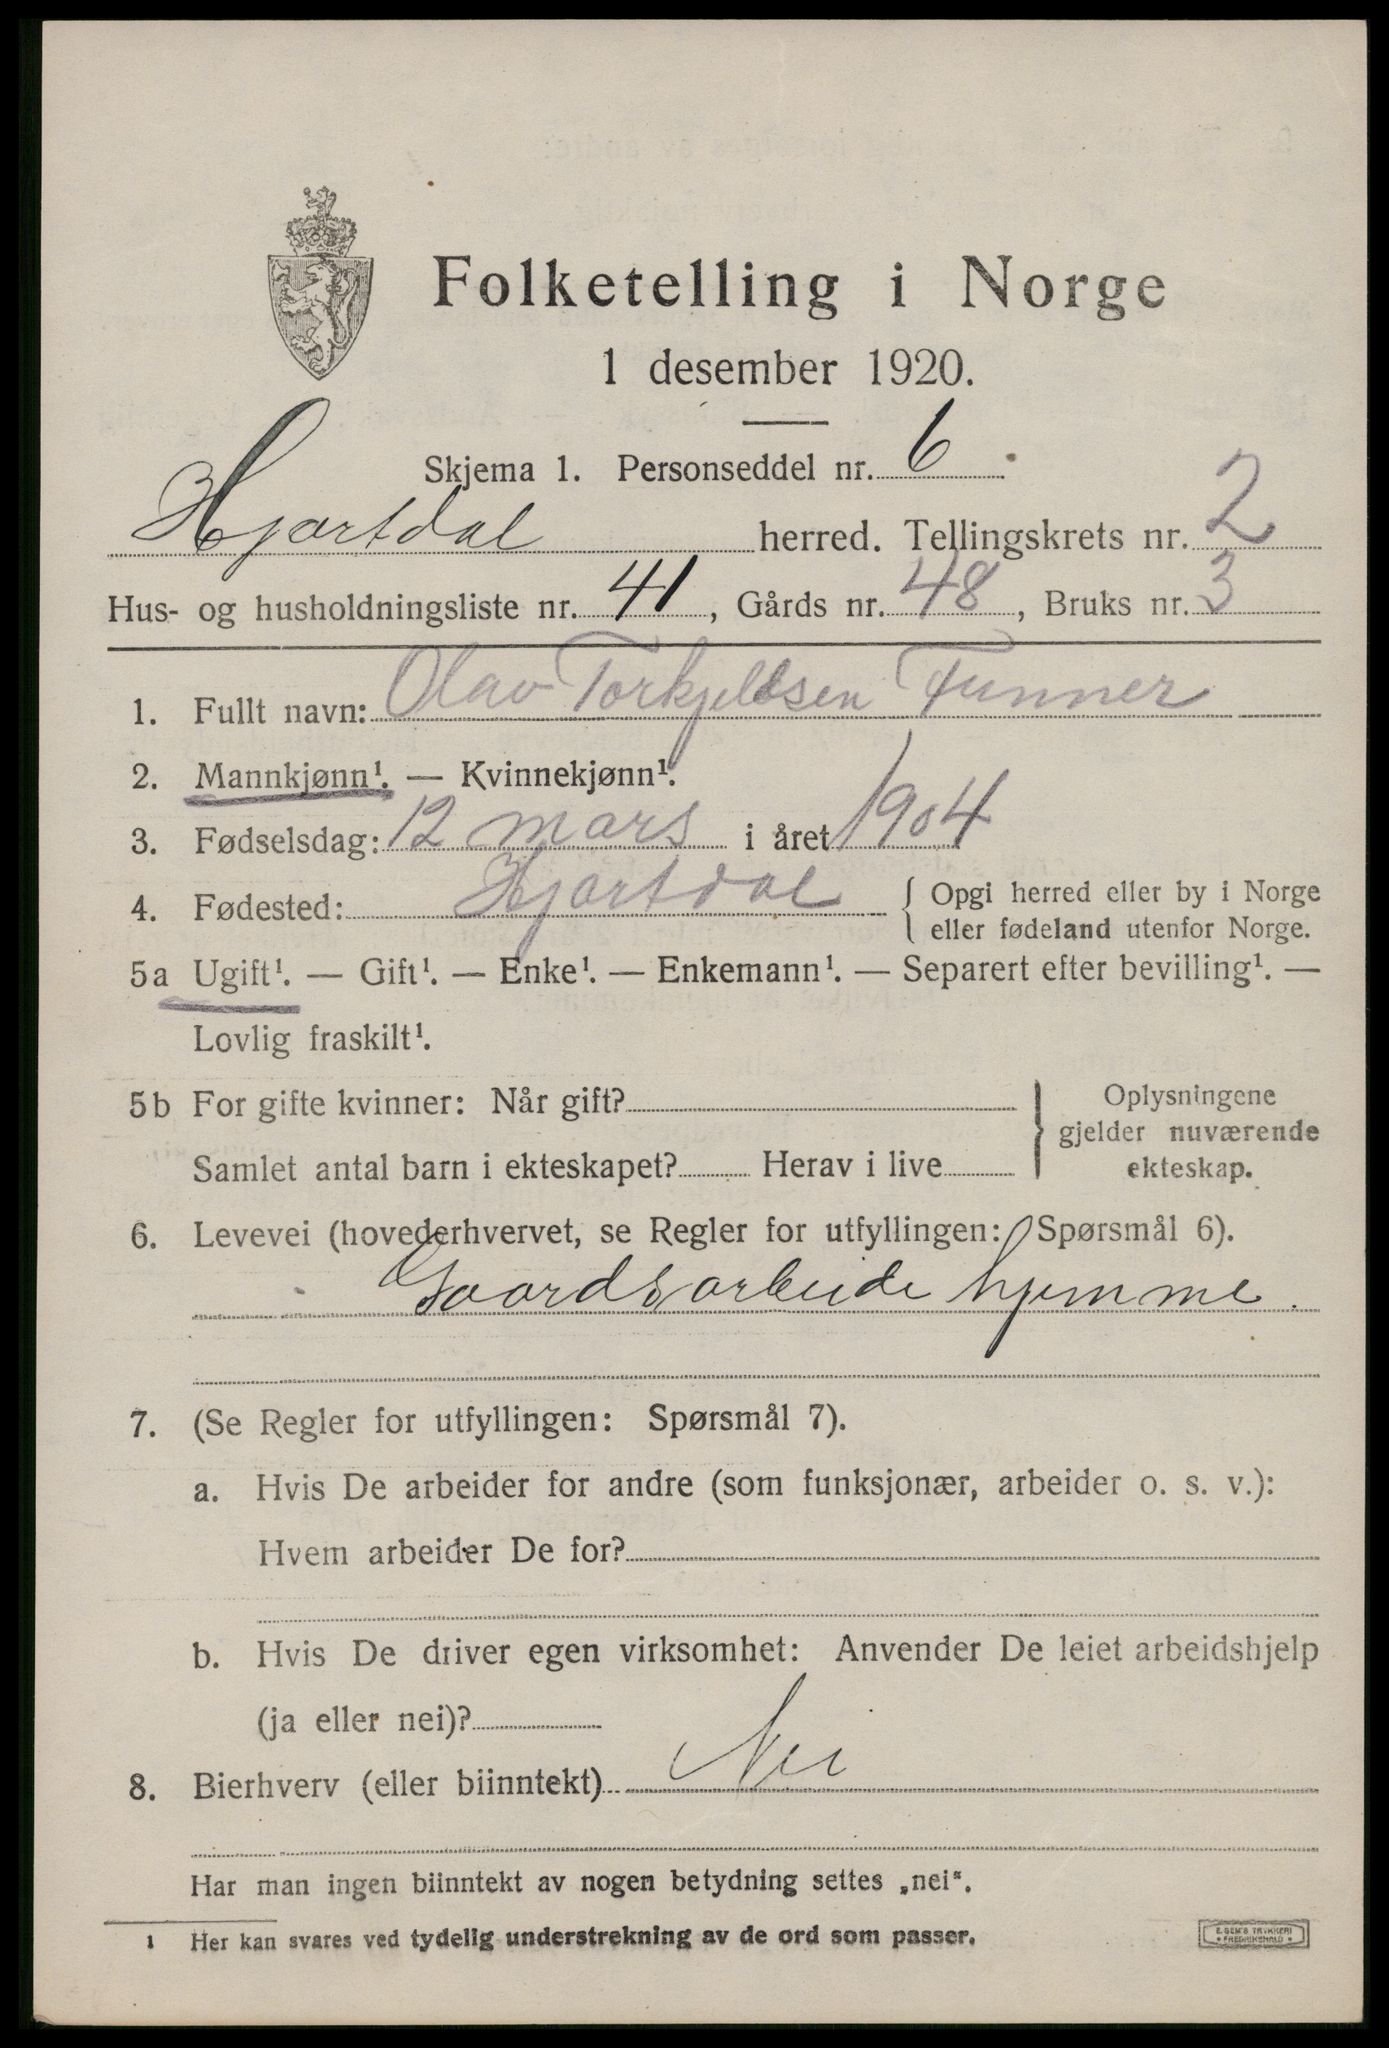 Folketelling i Norge
1 desember 1920.
Skjema 1. Personseddel nr. 6
Hjartdal herred. Tellingskrets nr. 2
Hus- og husholdningsliste nr. 41, Gårds nr. 48, Bruks nr. 3
1. Fullt navn: Olav Torkjelsen Funner
2. Mannkjønn¹. — Kvinnekjønn¹.
3. Fødselsdag: 12 mars i året 1904
4. Fødested: Hjartdal { Opgi herred eller by i Norge
eller fødeland utenfor Norge.
5a Ugift¹. — Gift¹. — Enke¹. — Enkemann¹. — Separert efter bevilling¹. —
Lovlig fraskilt¹.
5b For gifte kvinner: Når gift?
Samlet antal barn i ekteskapet? Herav i live
} Oplysningene
gjelder nuværende
ekteskap.
6. Levevei (hovederhvervet, se Regler for utfyllingen: Spørsmål 6).
Gaardsarbeide hjemme.
7. (Se Regler for utfyllingen: Spørsmål 7).
a. Hvis De arbeider for andre (som funksjonær, arbeider o. s. v.):
Hvem arbeider De for?
b. Hvis De driver egen virksomhet: Anvender De leiet arbeidshjelp
(ja eller nei)?
8. Bierhverv (eller biinntekt) Nei
Har man ingen biinntekt av nogen betydning settes „nei“.
1 Her kan svares ved tydelig understrekning av de ord som passer.
E. SEM'S TRYKKERI
FREDRIKSHALD